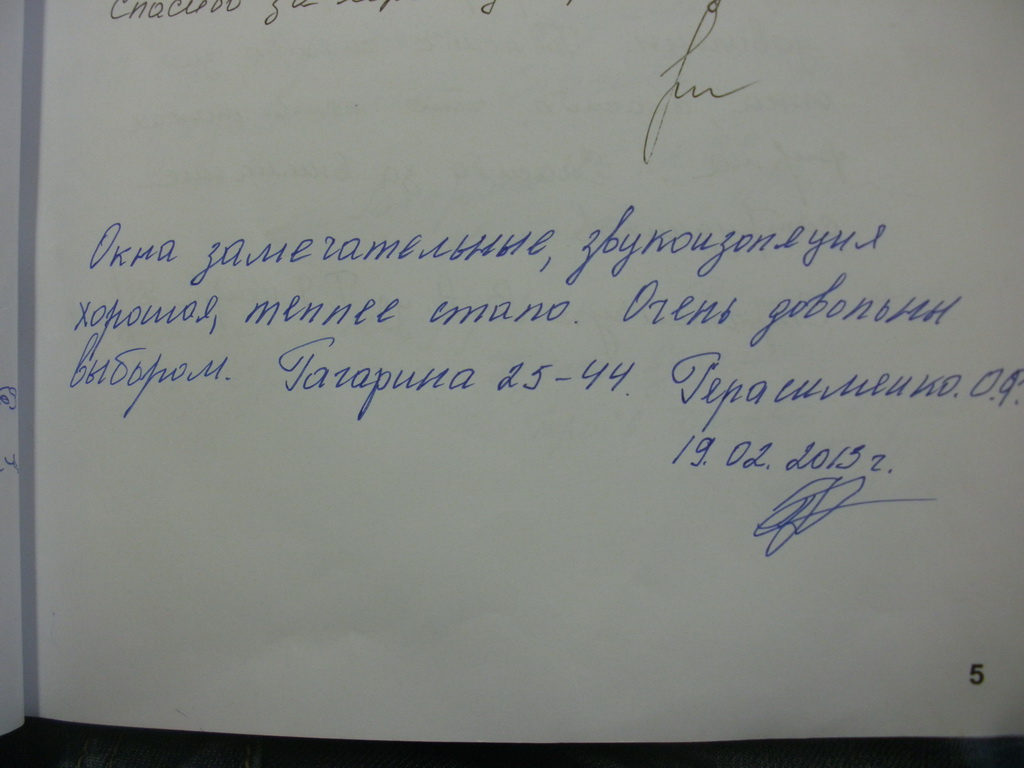 Спасибо за
Окна замечательные, звукоизоляция
хорошая, теплее стало. Очень довольны
выбором. Гагарина 25-44. Герасименко. О.Ф.
19.02.2013г.
5